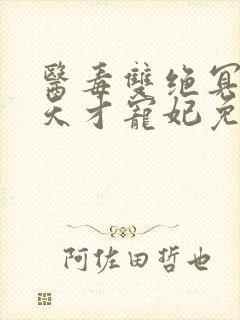 醫毒雙绝冥
天才寵妃免
阿佐田哲也